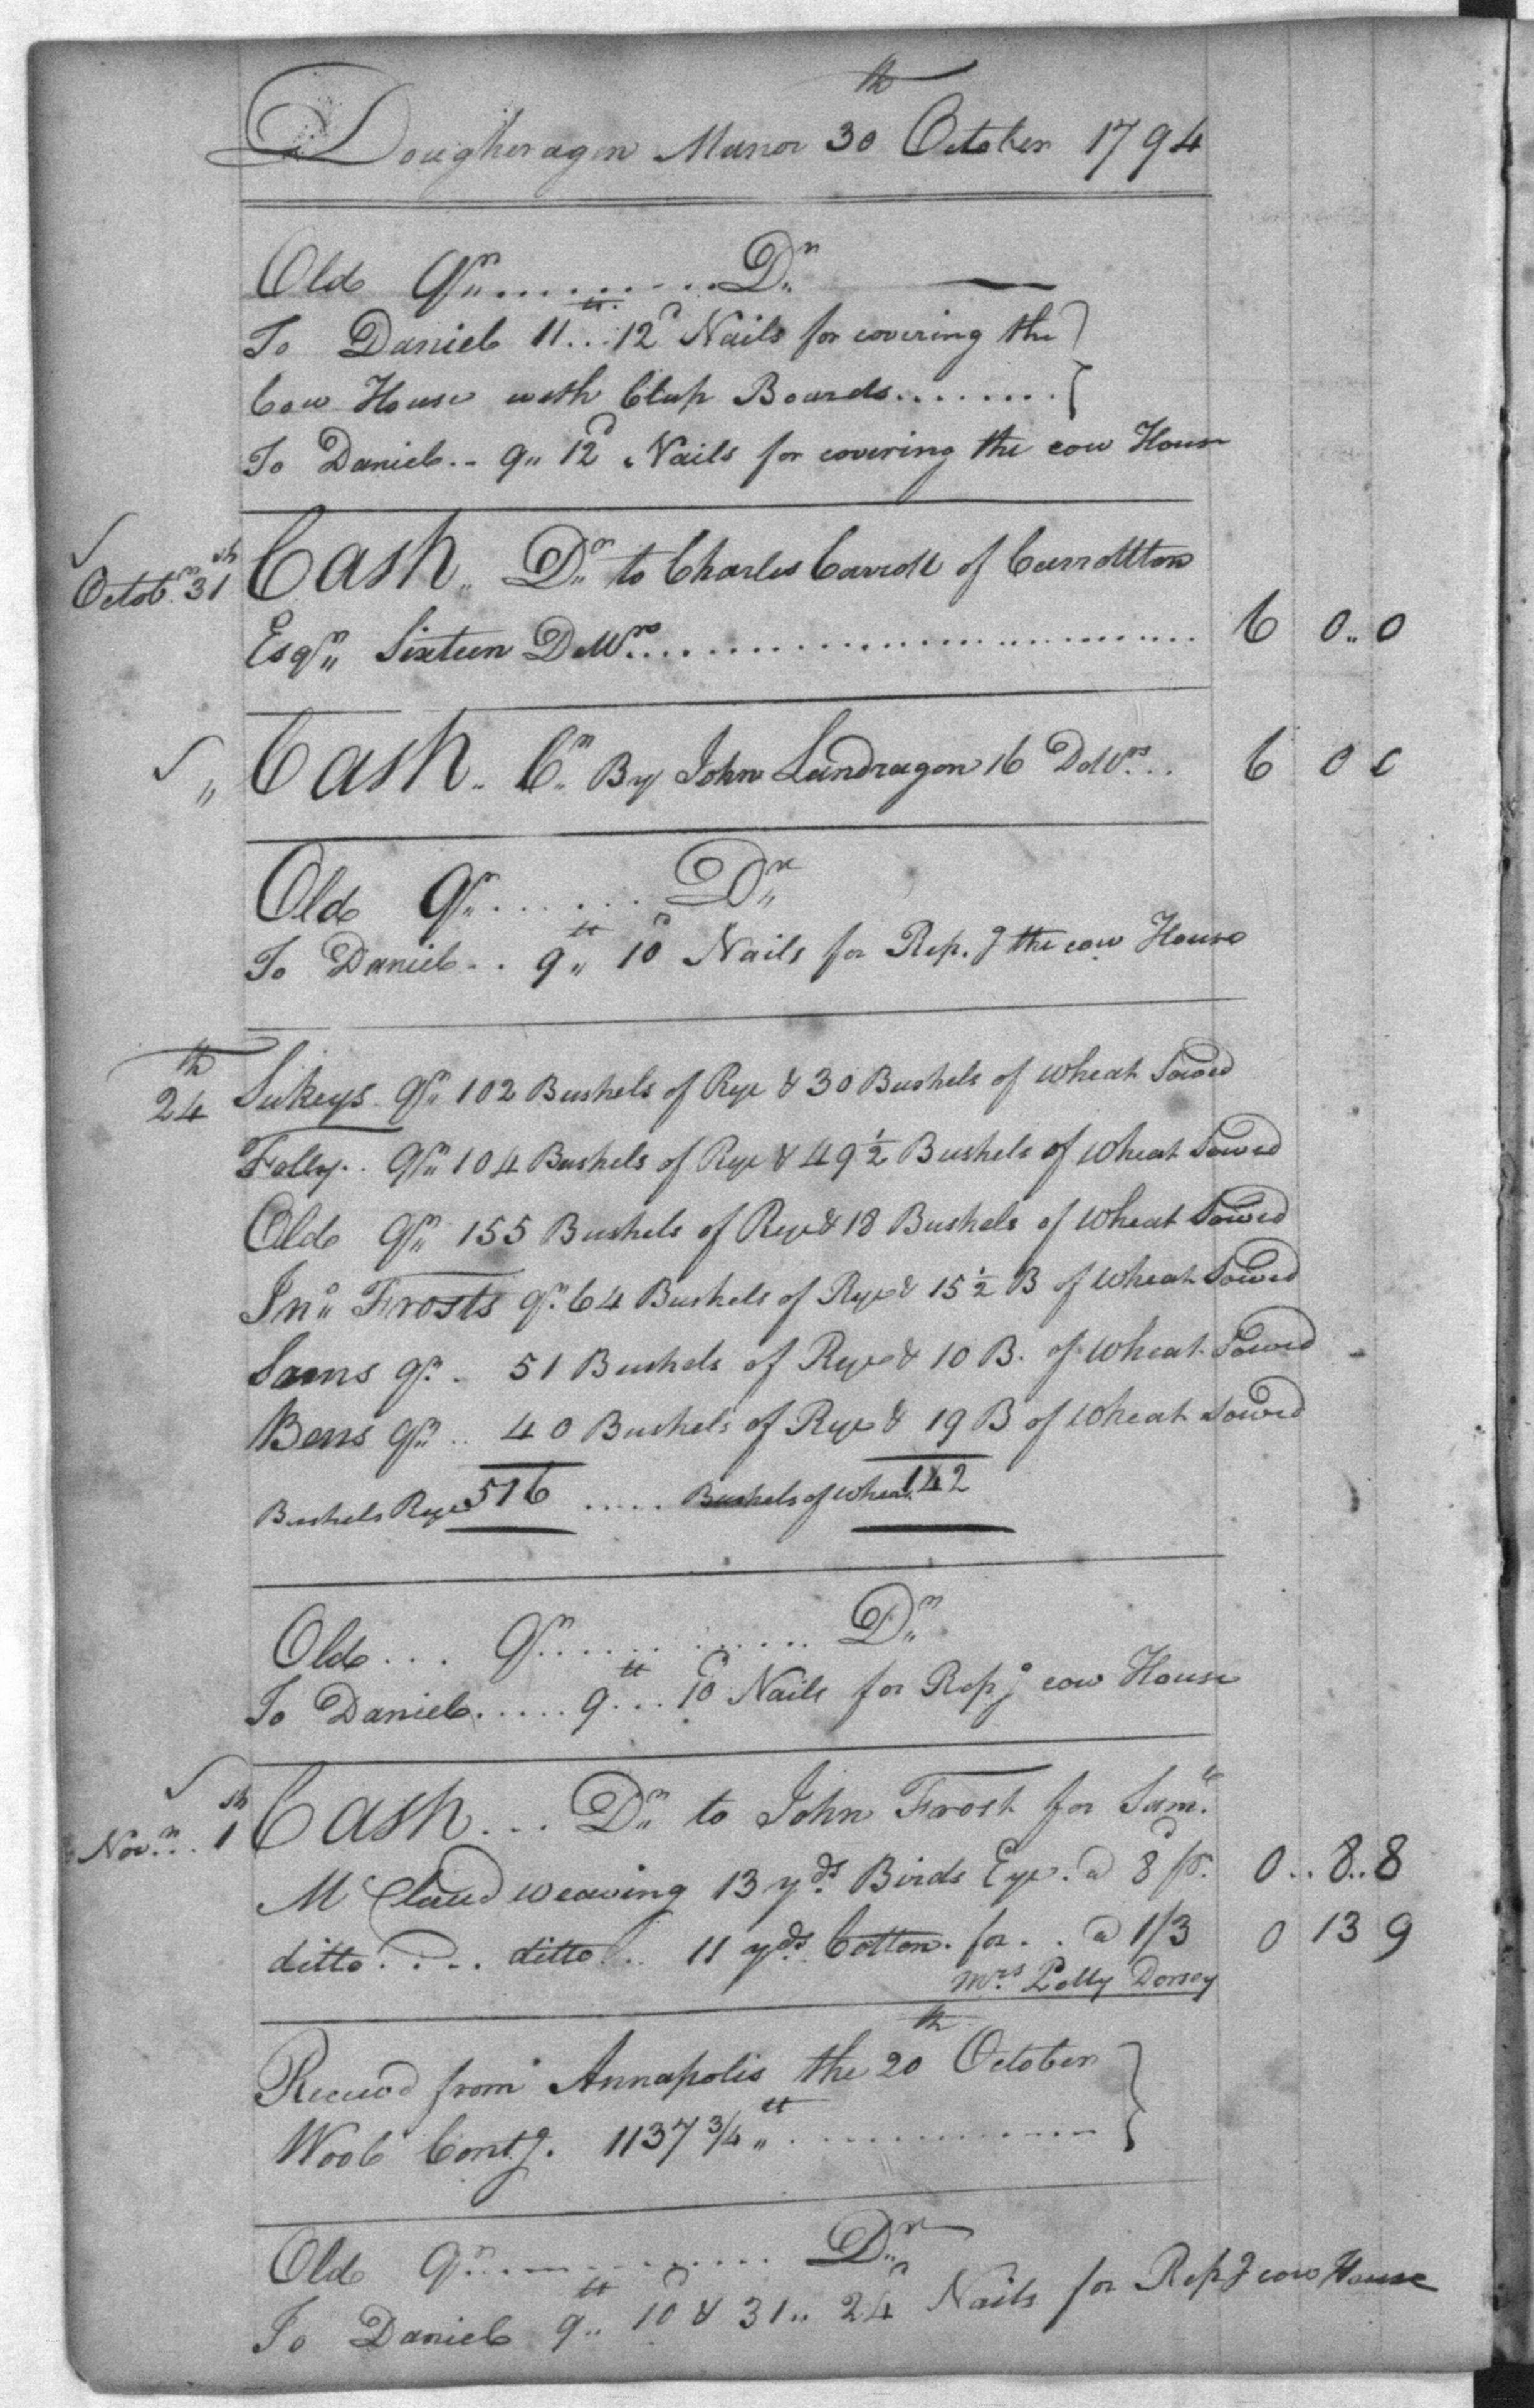 Dougheragen Manor 30th October 1794
Old Qr. ......... Dr.
To Daniel 11 lb ... 12d Nails for covering the
Cow House with Clap Boards ........
To Daniel .. 9 " 12d Nails for covering the cow House
Octobr. 31st Cash Dr. to Charles Carroll of Carrollton
Esqr. Sixteen Dollrs. .......................... 6 0 .. 0
" Cash .. Cr. By John Landragon 16 Dollrs. .. 6 0 0
Old Qr. ....... Dr.
To Daniel .. 9 lb " 10d Nails for Rep.g the cow House
24th Sukeys Qr. 102 Bushels of Rye & 30 Bushels of wheat Sowed
Folly .. Qr. 104 Bushels of Rye & 49 1/2 Bushels of wheat Sowed
Old Qr. 155 Bushels of Rye & 18 Bushels of wheat Sowed
Jno. Frosts Qr. 64 Bushels of Rye & 15 1/2 B of wheat Sowed
Sams Qr. . 51 Bushels of Rye & 10 B. of wheat Sowed
Bens Qr. .. 40 Bushels of Rye & 19 B of wheat Sowed
Bushels Rye 516 ..... Bushels of wheat 142
Old ... Qr. ............ Dr.
To Daniel ..... 9 lb ... 10d Nails for Repg cow House
Novr. 1st Cash ... Dr. to John Frost for Saml.
McClaud weaving 13 yds. Birds Eye. @ 8d pr. 0 .. 8 .. 8
ditto .... ditto .. 11 yds. Cotton. for .. @ 1/3 0 13 9
Mrs. Polly Dorsey
Receivd from Annapolis the 20th October
Wool Contg. 1137 3/4 lb " ..............
Old Qr. ............ Dr.
To Daniel 9 lb .. 10d & 31 .. 24d Nails for Repg cow House